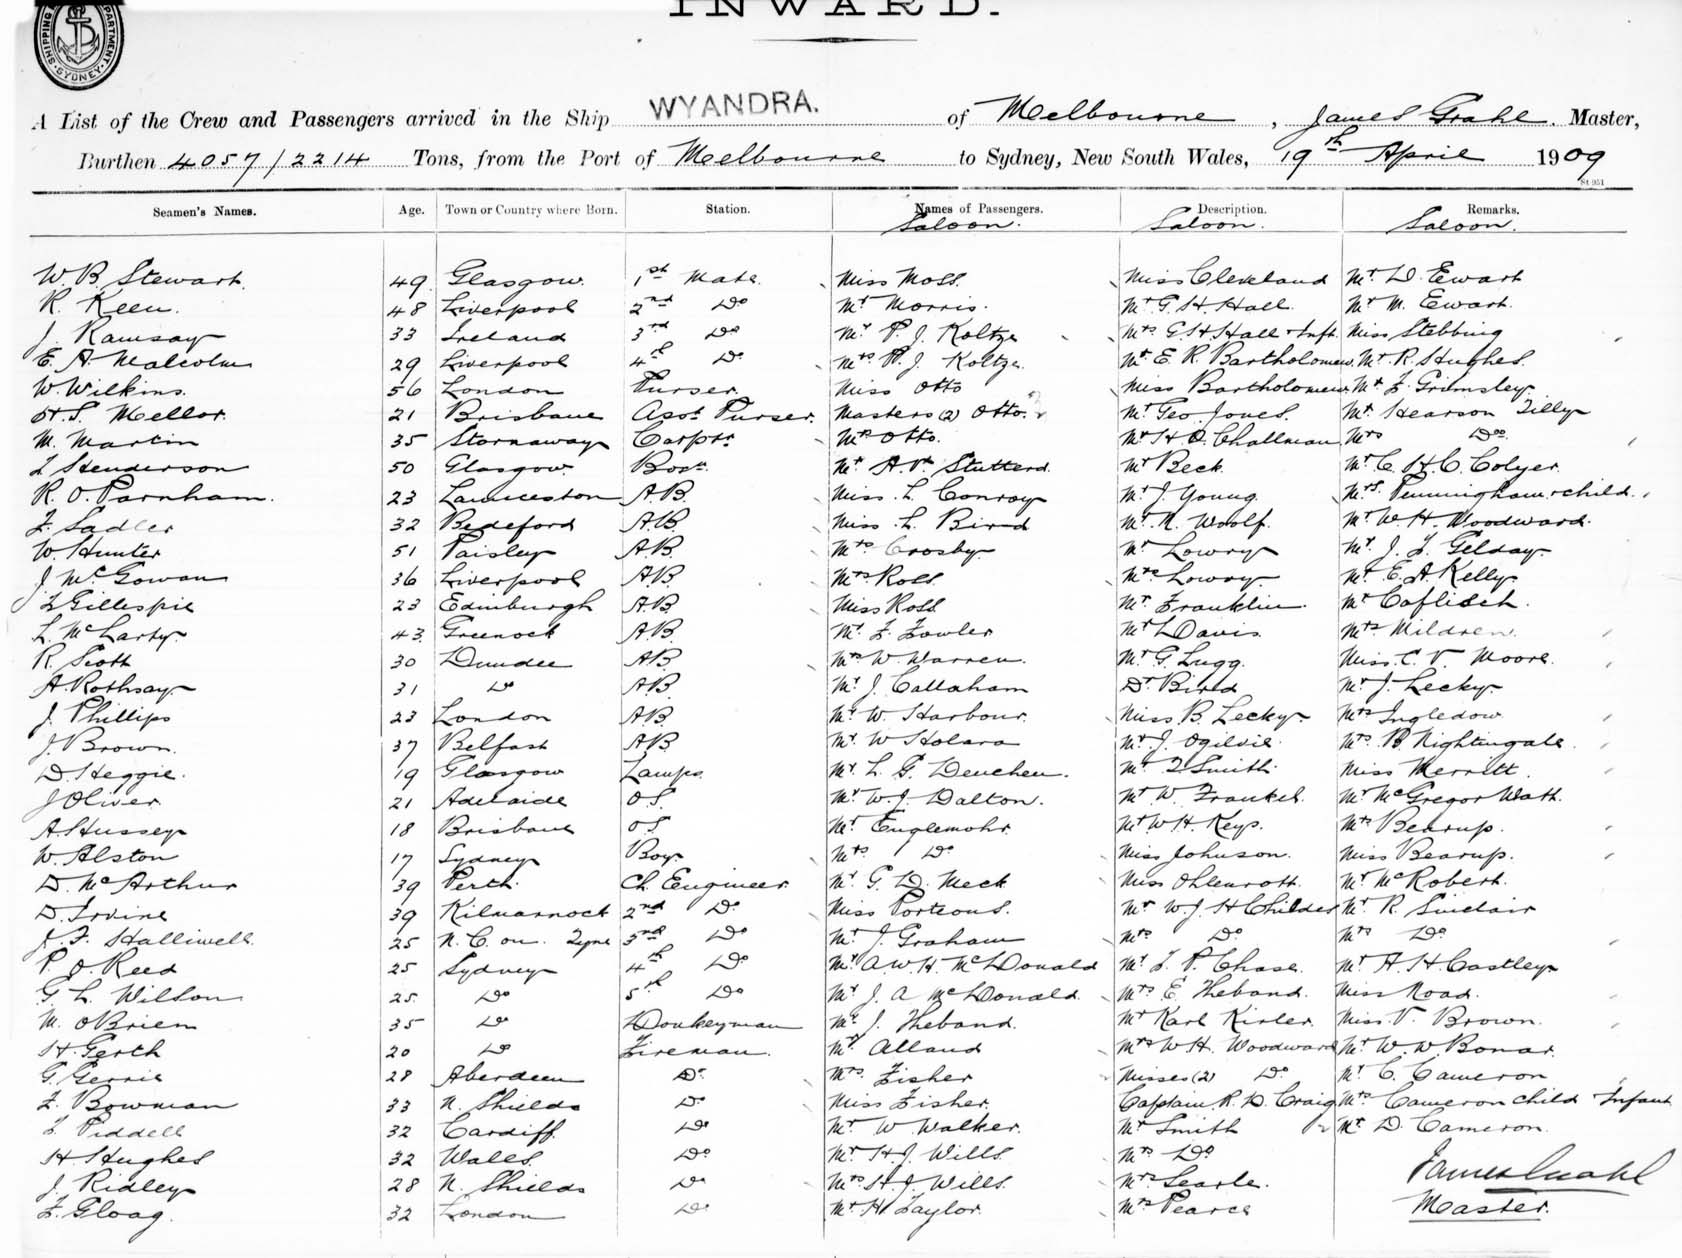 INWARD.
SHIPPING DEPARTMENT SYDNEY
A List of the Crew and Passengers arrived in the Ship WYANDRA. of Melbourne, James Grahl. Master,
Burthen 4057/2214 Tons, from the Port of Melbourne to Sydney, New South Wales, 19th April 1909
St 951
Seamen's Names. Age. Town or Country where Born. Station. Names of Passengers. Description. Remarks.
Saloon. Saloon. Saloon.
W. B. Stewart. 49 Glasgow. 1st Mate. Miss Moss. Miss Cleveland Mr D. Ewart
R. Keen. 48 Liverpool 2nd Do Mr Morris. Mr G. H. Hall. Mr M. Ewart.
J. Ramsay 33 Ireland 3rd Do Mr P. J. Koltze Mrs G. H. Hall + Inft. Miss Stebbing
E. A. Malcolm 29 Liverpool 4th Do Mrs P. J. Koltze. Mr E. R. Bartholomew. Mr R. Hughes.
W. Wilkins. 56 London Purser. Miss Otto Miss Bartholomew. Mr F. Grimsley.
H. S. Mellor. 21 Brisbane Asst Purser. Masters (2) Otto. 2 Mr Geo. Jones. Mr Hearson Tilly
M. Martin 35 Stornaway Carptr. Mrs Otto. Mr H. O. Challman Mrs Do
F Henderson 50 Glasgow. Bosn. Mr A. Stutterd. Mr Beck. Mr C. H. C. Colyer.
R. O. Parnham. 23 Launceston A.B. Miss. L. Conroy Mr J. Young. Mrs. Penningham + child.
F. Sadler 32 Bedeford A.B. Miss. L. Bird Mr N. Woolf. Mr W. H. Woodward.
W. Hunter 51 Paisley A.B. Mrs Crosby. Mr Lowry Mr J. F. Gelday.
J. McGowan 36 Liverpool A.B. Mrs Ross. Mrs Lowry. Mr E. A. Kelly.
F Gillespie 23 Edinburgh A.B. Miss Ross Mr Franklin. Mr Caflisch.
L. McLarty. 43. Greenock A.B. Mr F. Fowler Mr L Davis Mrs Mildren.
R. Scott 30 Dundee A.B. Mrs W. Warren. Mr G. Lugg. Miss. C. V. Moore.
A. Rothsay. 31 Do A.B. Mr J. Callaham Dr Bird Mr J. Lecky.
J. Phillips 23 London A.B. Mr W. Harbour. Miss B. Lecky. Mrs Ingledow
J. Brown. 37 Belfast A.B. Mr W Holara Mr J. Ogilvie. Mrs B Nightingale.
D. Heggie. 19 Glasgow Lamps. Mr L. G. Deuchen. Mr T Smith. Miss Merritt.
J Oliver. 21 Adelaide O.S. Mr W. J. Dalton. Mr W. Frankel. Mr McGregor Watt.
A. Hussey 18 Brisbane O.S. Mr Englemohr. Mr W. H. Keys. Mrs Bearup.
W. Alston 17 Sydney Boy. Mrs Do Miss Johnson. Miss Bearup.
D. McArthur 39 Perth. Ch. Engineer. Mr G. D. Meck Miss Ohlenrott. Mr McRobert.
D. Irvine 39 Kilmarnock 2nd Do Miss Porteous. Mr W. J. H Childer Mr R. Sinclair
J. F. Halliwell. 25 N.C. on. Tyne 3rd Do Mr J. Graham Mrs Do Mrs Do
P. J. Reed 25 Sydney 4th Do Mr A. W. H. McDonald Mr F. P. Chase. Mr A. H. Castley
G. L. Wilson 25 Do 5th Do Mr J. A McDonald. Mrs E. Theband. Miss Road.
M. OBrien 35 Do Donkeyman Mr J. Theband. Mr Karl Kirler. Miss. V. Brown.
H. Gerth 20 Do Fireman. Mr Alland Mrs W. H. Woodward Mr W. W. Bonar.
G. Gerrie 28 Aberdeen Do Mrs. Fisher Misses (2) Do Mr C. Cameron
F. Bowman 33 N. Shields Do Miss Fisher. Captain R. D. Craig Mrs Cameron child + Infant
F. Piddell 32 Cardiff. Do Mr W. Walker. Mr Smith Mr D. Cameron.
H. Hughes 32 Wales. Do Mr H. J. Wills. Mrs Do
J. Ridley 28 N. Shields Do Mrs H. J. Wills. Mrs Searle. James Grahl
F. Gloag. 32 London Do Mr H. Taylor. Mrs Pearce Master.